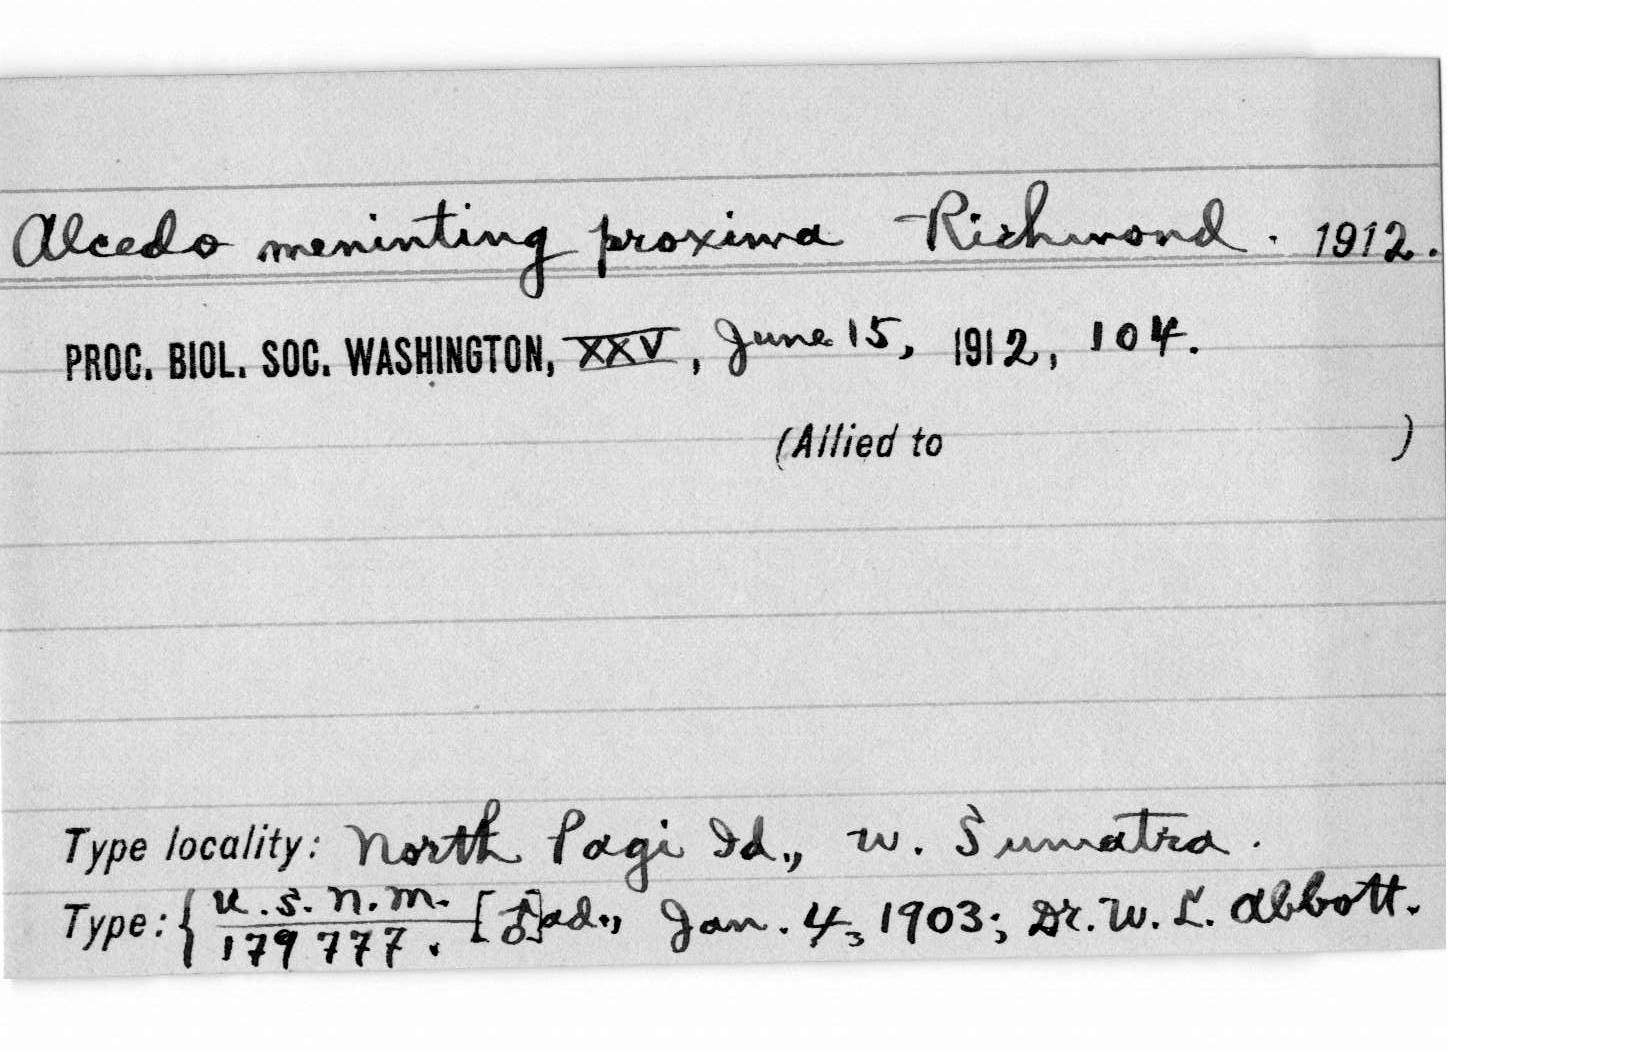 Alcedo meninting proxima Richmond. 1912.
PROC. BIOL. SOC. WASHINGTON, XXV, June 15, 1912, 104.
(Allied to )
Type locality: North Pagi Id., w. Sumatra.
Type: { U.S.N.M. [♂]ad., Jan. 4, 1903; Dr. W. L. Abbott.
179777.